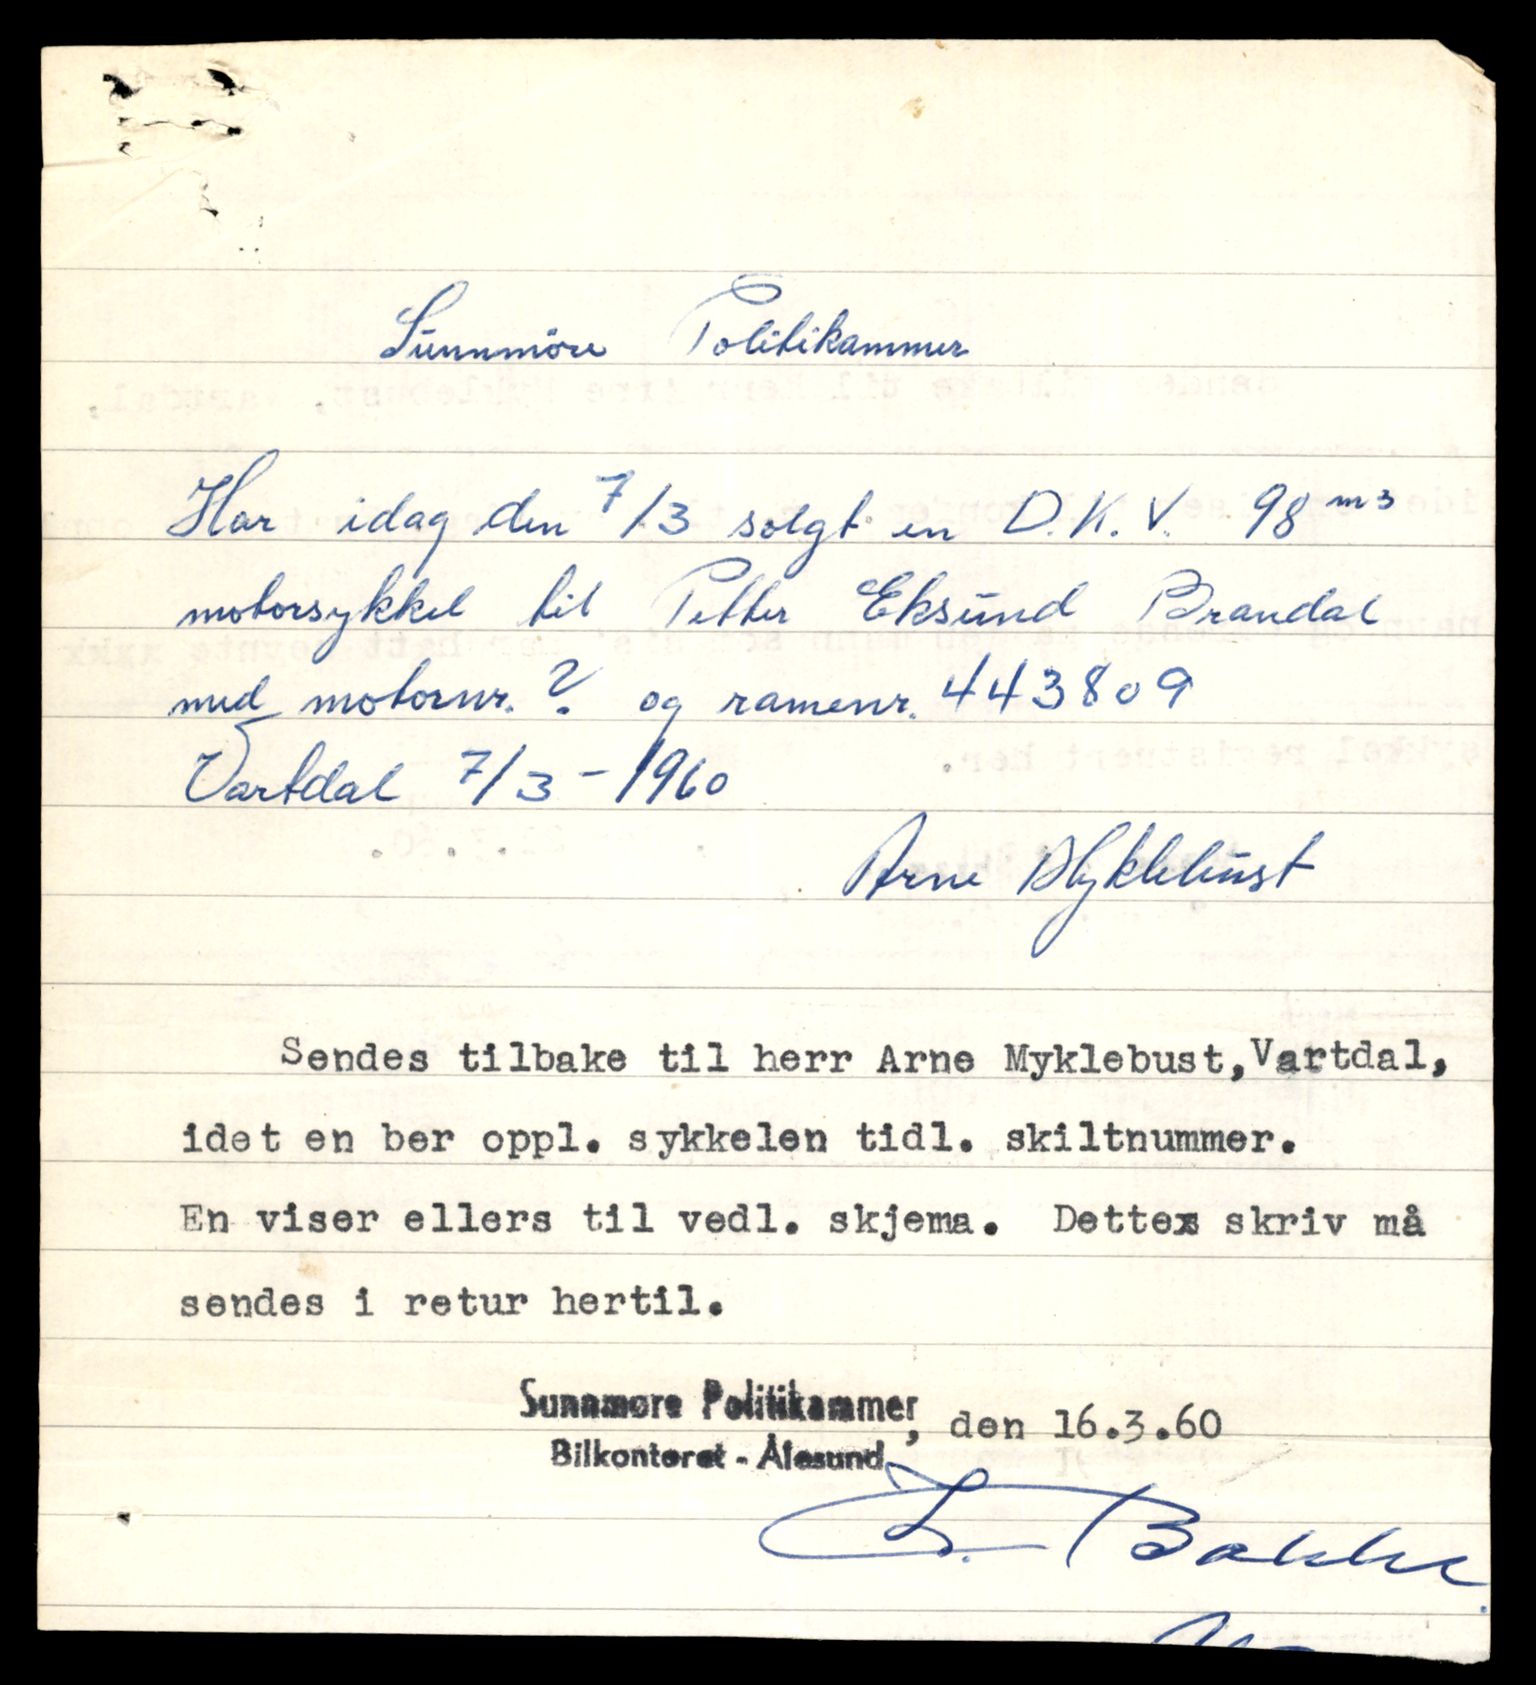 Sünnmöre Politikammer
Har idag den 7/3 solgt en D.K.V. 98 m3
motorsykkel til Petter Eksünd Brandal
med motornr. ? og ramenr. 443809
Vartdal 7/3 - 1960
Arne Myklebüst
Sendes tilbake til herr Arne Myklebust, Vartdal,
idet en ber oppl. sykkelen tidl. skiltnummer.
En viser ellers til vedl. skjema. Dettex skriv må
sendes i retur hertil.
Sunnmøre Politikammer, den 16.3.60
Bilkontoret - Ålesund
Bakke